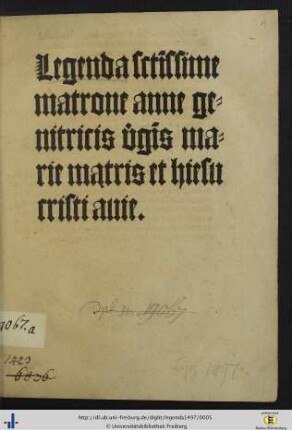 Legenda sctissime
matrone anne ge-
nitricis v̄gis ma-
rie matris et hiesu
cristi auie.
9067.a
1423
6836
http://dl.ub.uni-freiburg.de/diglit/legenda1497/0005
© Universitätsbibliothek Freiburg